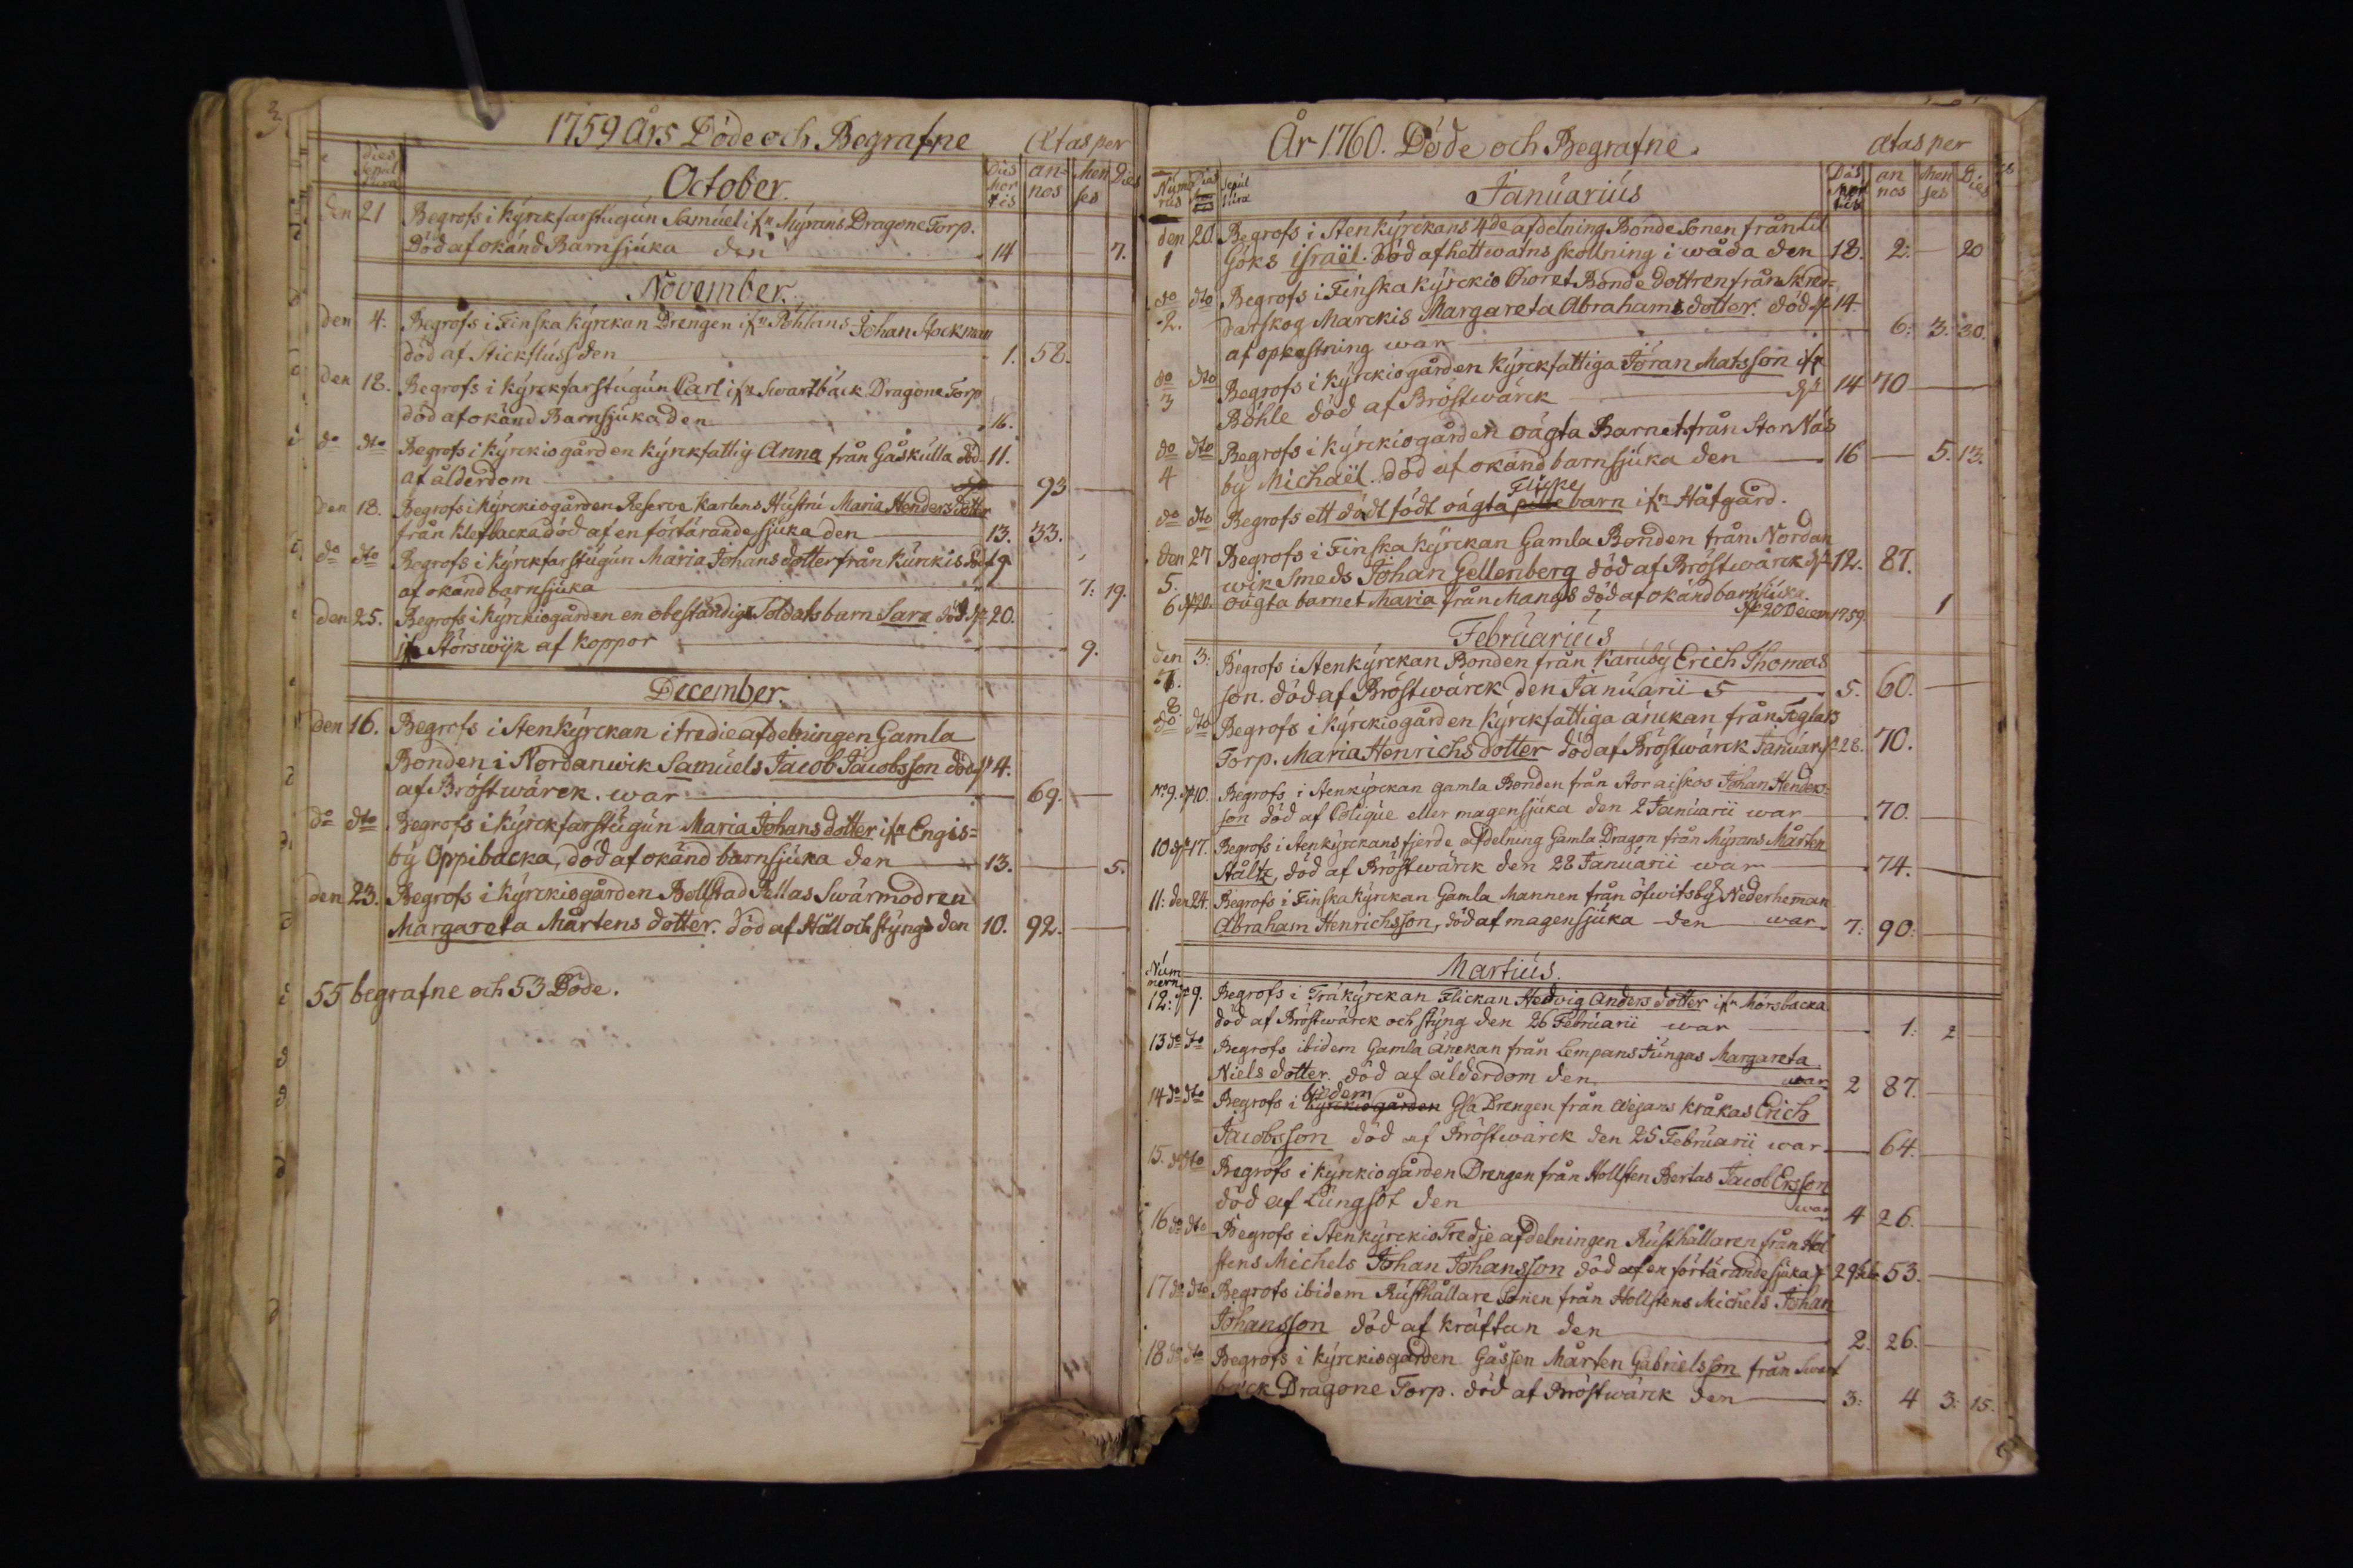 3
1759 Års Döde och Begrafne Ætas per
dies Sepul turæ October. Dies Mor tis an= nos Men ses Dies
den 21 Begrofs i Kyrckfarstugun Samuel ifn Myrans Dragone Torp.
Död af okänd Barnsjuka den 14 7.
November.
den 4. Begrofs i Finska Kyrckan Drengen ifn Pohlans Johan Stockman
död af Stickfluss den 1. 58.
den 18. Begrofs i Kyrckfarstugun Carl ifn Swartbäck Dragone Torp
död af okänd Barnsjuka den 16.
do dto Begrofs i Kyrckiogården Kyrckfattig Anna från Gåskulla död 11.
af ålderdom 93
den 18. Begrofs i Kyrckiogården Reserve Karlens Hustru Maria Henders dotter
från Klefbacka död af en förtärande sjuka den 13. 33.
do dto Begrofs i Kyrckfarstugun Maria Johans dotter från Kurckis död 9
af okänd barnsjuka 7: 19.
den 25. Begrofs i Kyrckiogården en obeständig Soldatsbarn Sara död dn 20.
ifn Störswijk af Koppor 9.
December.
den 16. Begrofs i Stenkyrckan i tredie afdelningen Gamla
Bonden i Nordanwik Samuels Jacob Jacobsson död dn 4.
af Bröstwärck. war 69.
do dto Begrofs i Kyrckfarstugun Maria Johans dotter ifn Engis=
by Oppibacka, död af okänd barnsjuka den 13. 5.
den 23. Begrofs i Kyrckiogården Bollstad Pellas Swärmodren
Margareta Mårtens dotter. död af Håll och styng den 10. 92.
55 begrafne och 53 Döde.
År 1760. Döde och Begrafne. ætas per
Num rus Dies Sepul turæ Januarius Dies Mor tis an nos Men ses Dies
den 20. Begrofs i Stenkyrckans 4de afdelning Bonde Sonen från Lil
1 Göks israël. Död af hettwatns skollning i wåda den 18. 2: 20
do dto Begrofs i Finska Kyrckio Choret Bonde dottren från Skred=
2. darskog Marckis Margareta Abrahams dotter. död dn 14.
af opkastning war 6: 3: 30.
do dto Begrofs i Kyrckiogården Kyrckfattiga Jöran Matsson ifn
3 Böhle död af Bröstwärck dn 14 70
do dto Begrofs i Kyrckiogården oägta Barnet från Stor Näs
4 by Michaël. död af okänd barnsjuka den 16 5. 13.
do dto Begrofs ett dödt födt oägta Flicke barn ifn Håfgård.
den 27 Begrofs i Finska Kyrckan Gamla Bonden från Nordan
5. wik Smeds Johan Gellenberg död af Bröstwärck dn 12. 87.
6 dn 20. oägta barnet Maria från Mangs död af okänd barnsjuka.
dn 20 Decem 1759. 1
Februarius
den 3: Begrofs i Stenkyrckan Bonden från Karuby Erich Thomas
7. son. död af Bröstwärck den Januarii 5 5. 60.
8. do dto Begrofs i Kyrckiogården Kyrckfattiga änckan från Teglars
Torp. Maria Henrichs dotter död af Bröstwärck Januar dn 28. 70.
No 9. dn 10. Begrofs i Stenkyrckan gamla Bonden från Stor aiskos Johan Henders=
son död af Colique eller magensjuka den 2 Januarii war 70.
10 dn 17. Begrofs i Stenkyrckans fjerde afdelning Gamla Dragon från Myrans Mårten
Stålte, död af Bröstwärck den 28 Januarii war 74.
11: den 24. Begrofs i Finska Kyrckan Gamla Mannen från öfwitsby Nederheman
Abraham Henrichsson, död af magensjuka den war 7: 90:
Martius.
Num mern
12: dn 9. Begrofs i Träkyrckan Flickan Hedvig Anders dotter ifn Mörsbacka
död af Bröstwärck och styng den 26 Februarii war 1: 2
13 do dto Begrofs ibidem Gamla änckan från Lempans Jungas Margareta
Niels dotter. död af ålderdom den war 2 87.
14 do dto Begrofs ibidem Kyrckiogården Gla Drengen från Wejars Kråkas Erich
Jacobsson död af Bröstwärck den 25 Februarii war 64.
15. do dto Begrofs i Kyrckiogården Drengen från Hollsten Bertas Jacob Ersson
död af Lungsot den war 4 26.
16 do dto Begrofs i Stenkyrckio Tredje afdelningen Rusthållaren från Hol
stens Michels Johan Johansson död af en förtärande sjuka dn 29 Feb. 53.
17 do dto Begrofs ibidem Rusthållare Sonen från Hollstens Michels Johan
Johansson död af kräftan den 2. 26.
18 do dto Begrofs i Kyrckiogården Gåssen Mårten Gabrielsson från Swart
beck Dragone Torp. död af Bröstwärck den 3: 4 3: 15.